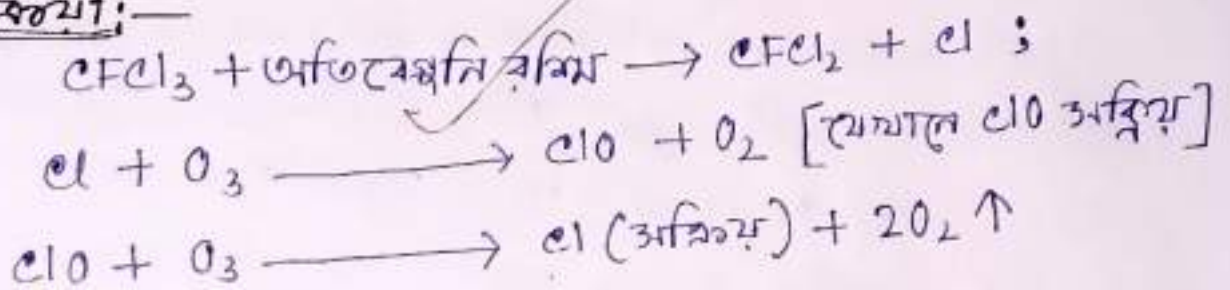 CFCl₃ + অতিবেগুনি রশ্মি → CFCl₂ + Cl ;
Cl + O₃ → ClO + O₂ [যেখানে ClO সক্রিয়]
ClO + O₃ → Cl (সক্রিয়) + 2O₂ ↑